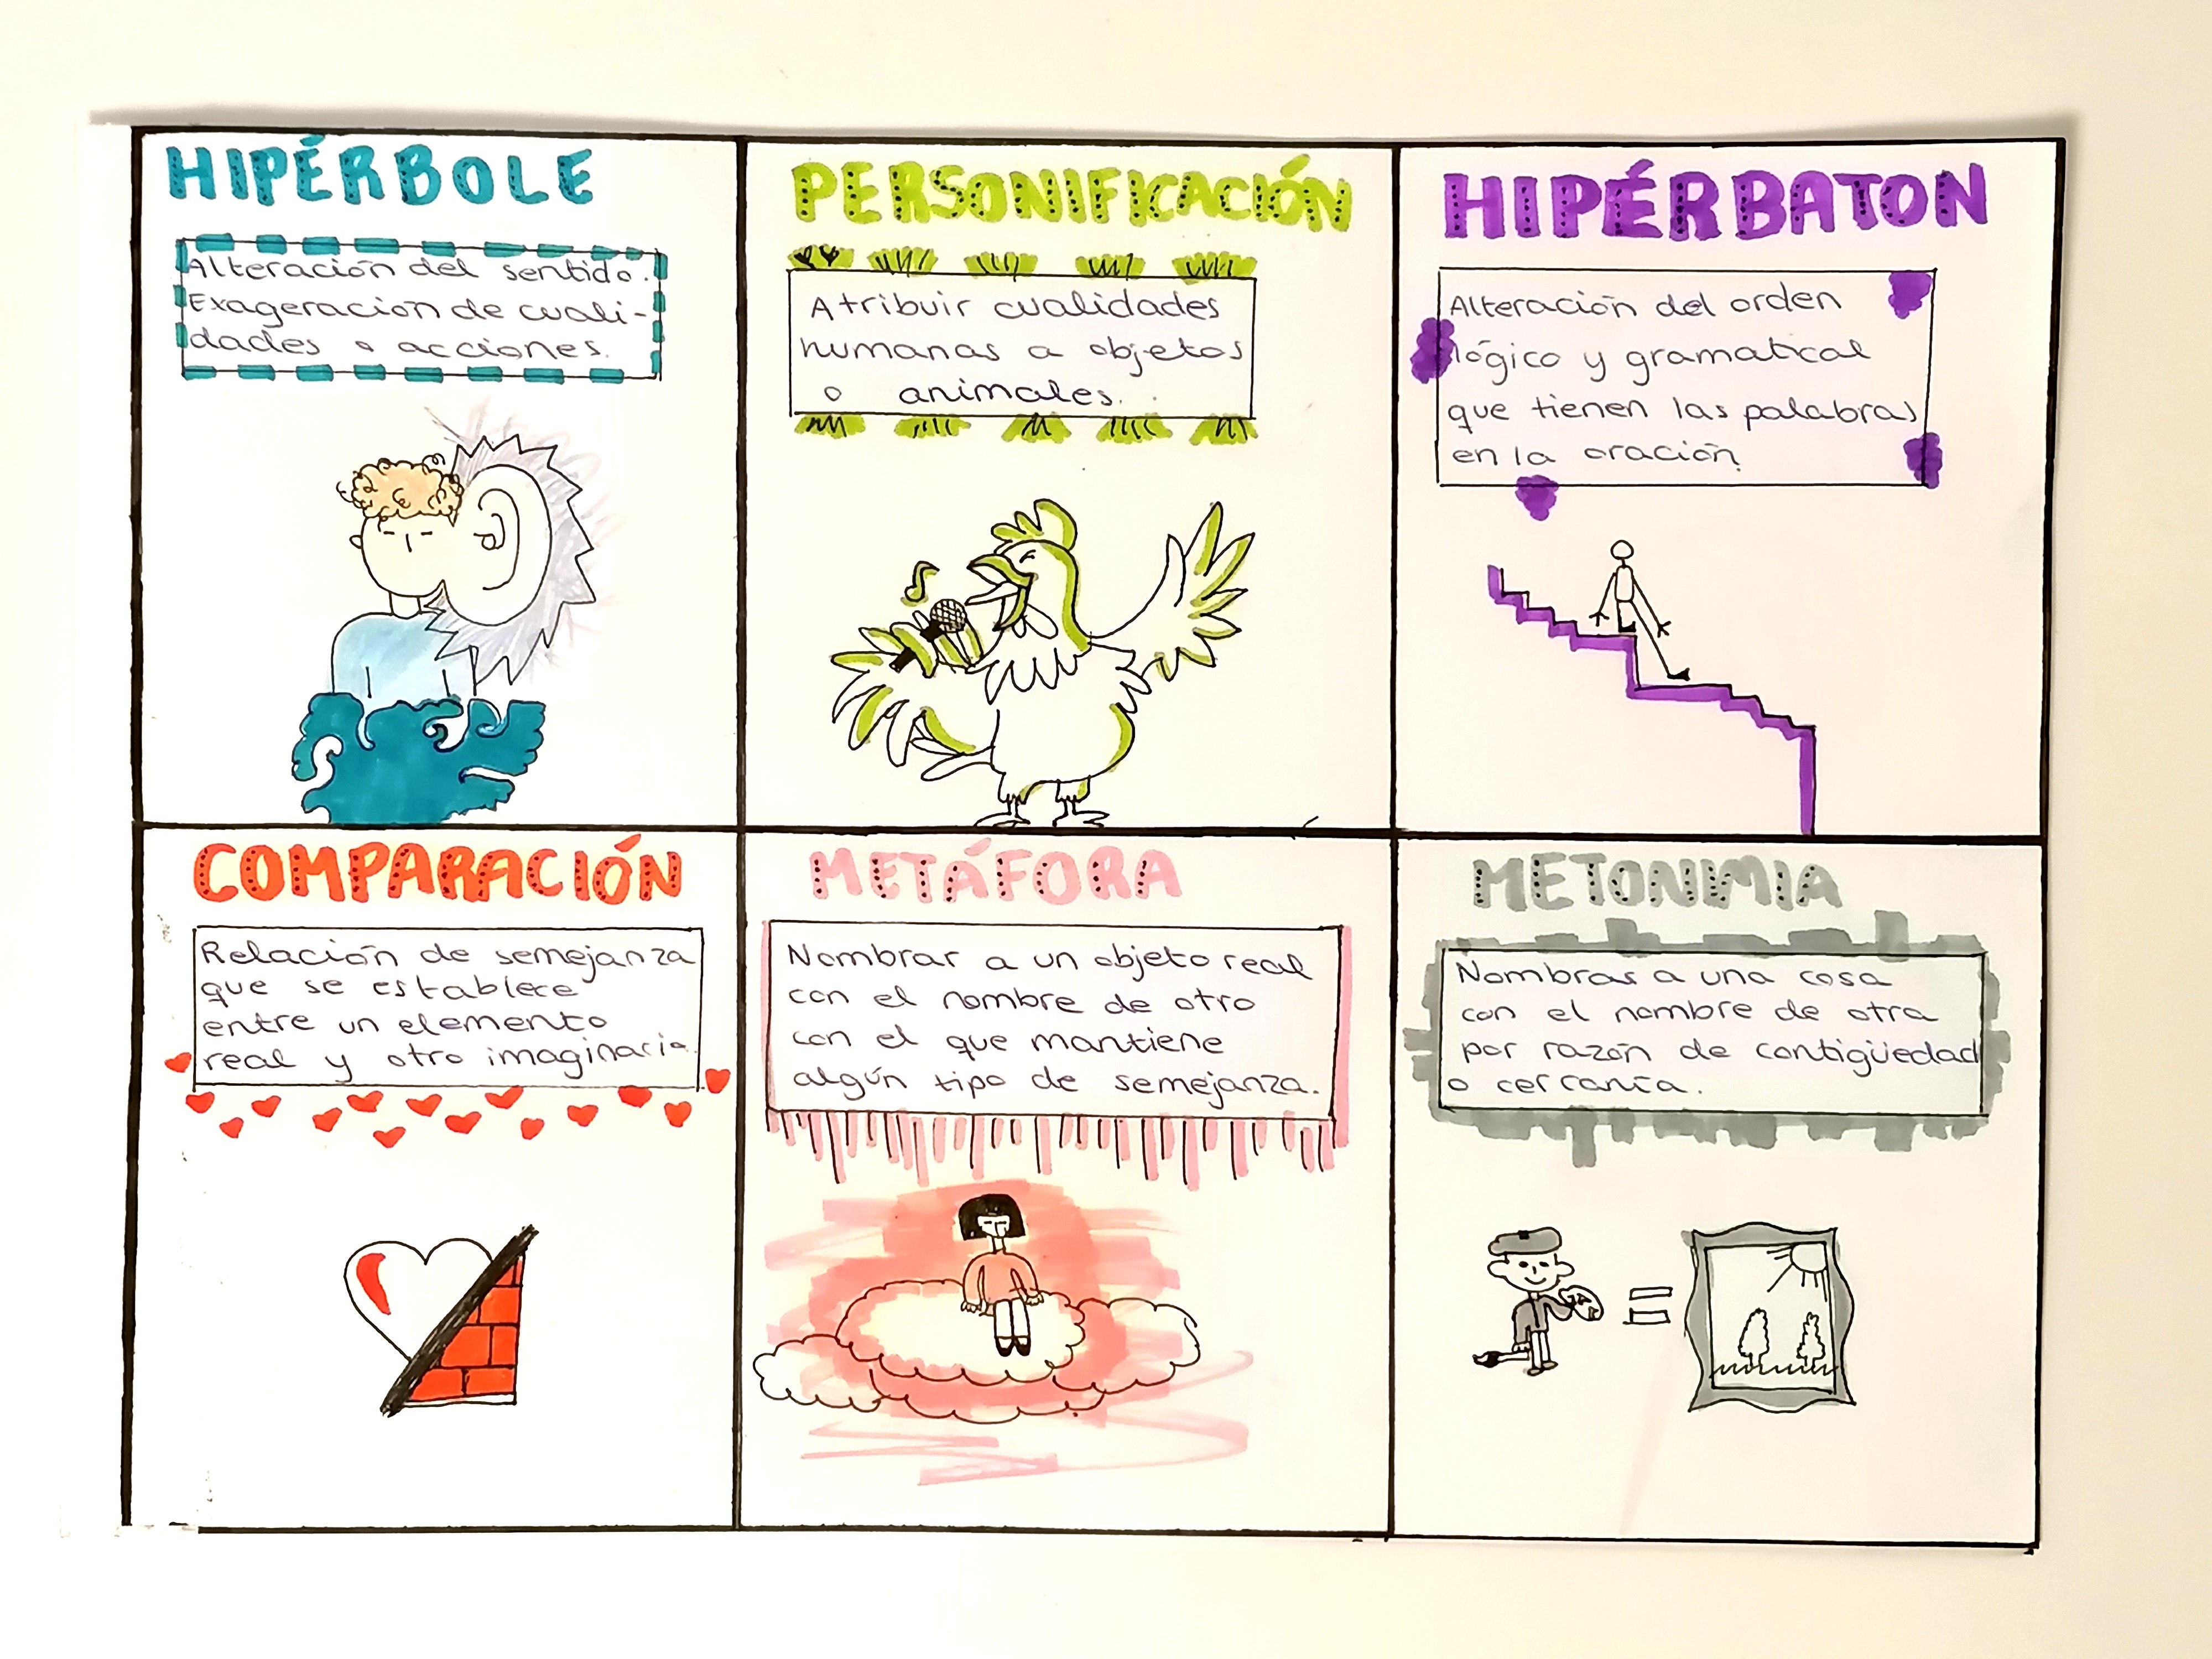 HIPÉRBOLE
Alteración del sentido.
Exageración de cuali-
dades o acciones.
PERSONIFICACIÓN
Atribuir cualidades
humanas a objetos
o animales.
HIPÉRBATON
Alteración del orden
lógico y gramatical
que tienen las palabras
en la oración.
COMPARACIÓN
Relación de semejanza
que se establece
entre un elemento
real y otro imaginario.
METÁFORA
Nombrar a un objeto real
con el nombre de otro
con el que mantiene
algún tipo de semejanza.
METONIMIA
Nombrar a una cosa
con el nombre de otra
por razón de contigüedad
o cercanía.
=